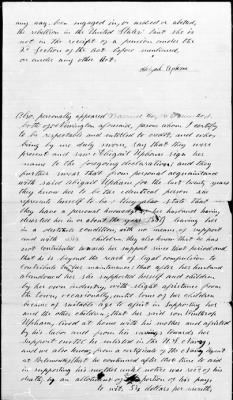 any way been engaged in, or aided or abetted,
the rebellion in the United States; that she is
not in the receipt of a pension under the
2d Section of the Act before mentioned,
or under any other Act.
Abigail Upham
Also personally appeared
of Lexington aforesaid, persons whom I certify
to be respectable and entitled to credit, and who,
being by me duly sworn, say that they were
present and saw Abigail Upham sign her
name to the foregoing declaration; and they
further swear that from personal acquaintance
with said Abigail Upham for the last twenty years
they know her to be the identical person she
represents herself to be; and also state that
they have a personal knowledge of her husband having
deserted her in or about the year leaving her
in a destitute condition, with no means of support
and with children; they also know that he has
not contributed towards her support since that period, and
that he is beyond the reach of legal compulsion to
contribute to her maintenance; that after her husband
abandoned her she supported herself and children,
by her own industry, with slight assistance from
the town, occasionally, until some of her children
became of suitable age to assist in supporting her
and the other children; that her said son Winthrop
Upham, lived at home with his mother and assisted
by his labor and from his earnings towards her
support until he enlisted in the U.S. Navy;
and we also know, from a certificate of the Navy Agent
at Portsmouth, that he continued after that time to aid
in supporting his mother until notice was rec'd of his
death, by an allotment of a portion of his pay,
to wit, Six dollars per month,